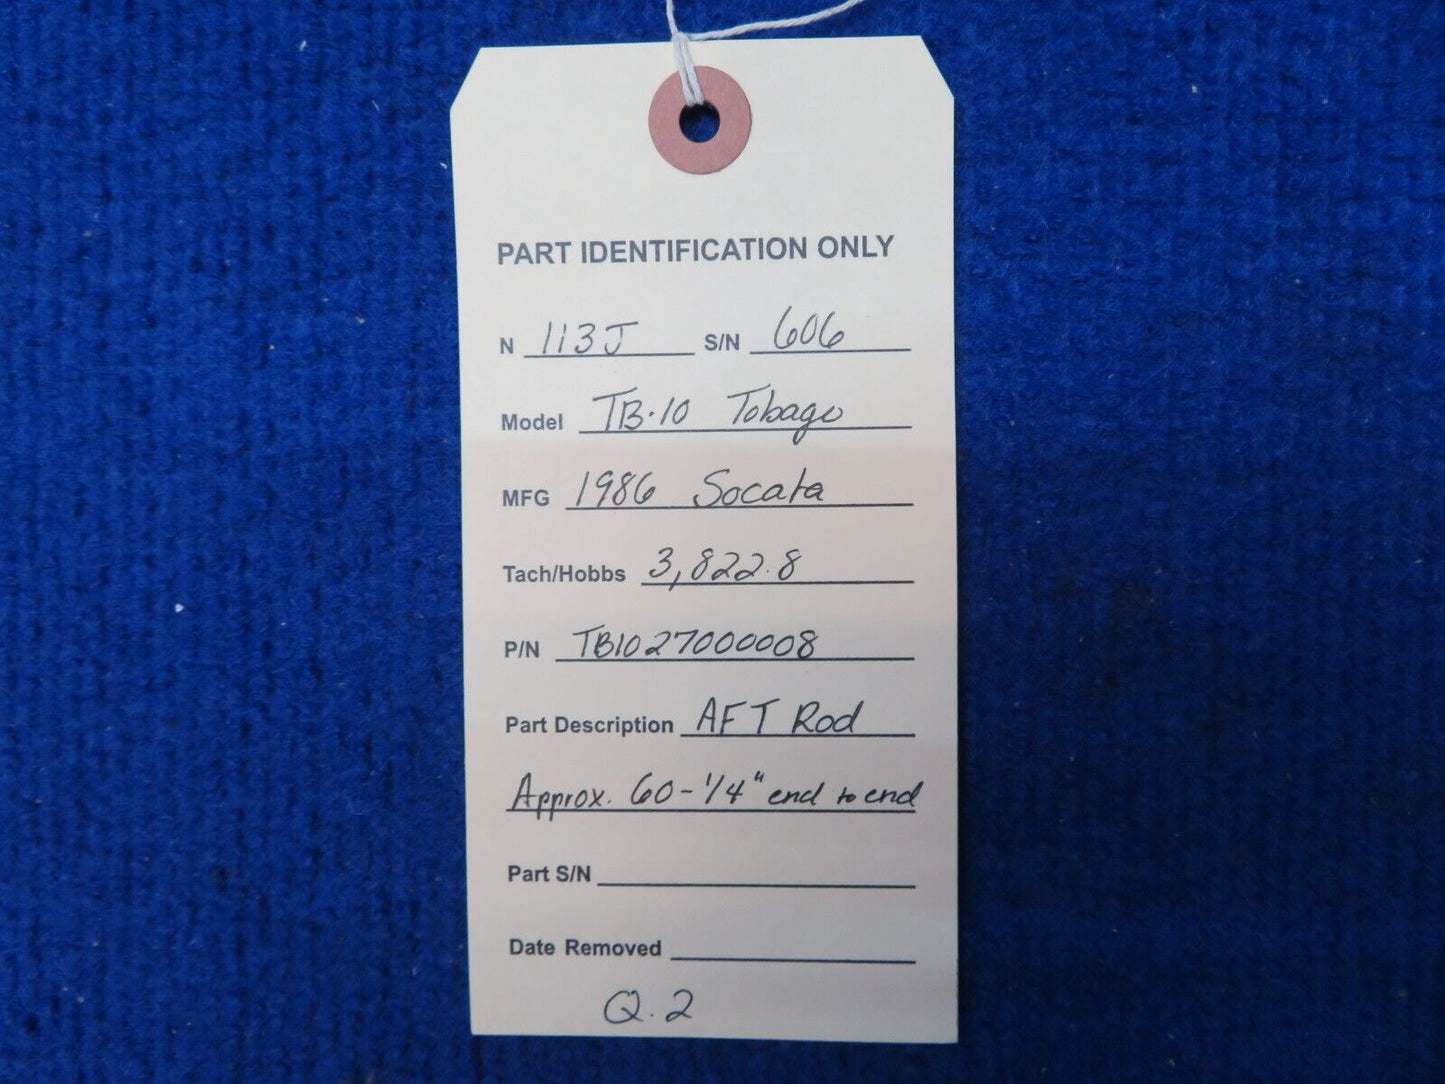 PART IDENTIFICATION ONLY
N 113J S/N 606
Model TB-10 Tobago
MFG 1986 Socata
Tach/Hobbs 3,822.8
P/N TB1027000008
Part Description AFT Rod
Approx. 60-1/4" end to end
Part S/N
Date Removed
Q.2